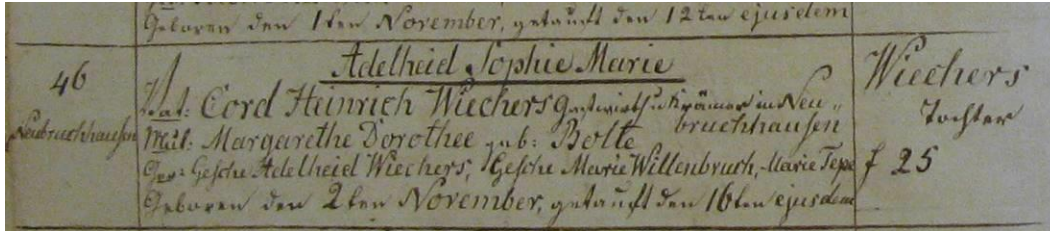 Geboren den 1ten November, getauft den 12ten ejusdem
46
Neubruchhausen
Adelheid Sophie Marie
Vat: Cord Heinrich Wiechers Gastwirth u Krämer in Neu-
bruchhausen
Mut: Margarethe Dorothee geb: Bolte
Gev: Gesche Adelheid Wiechers, Gesche Marie Willenbruch, Marie Tepe
Geboren den 2ten November, getauft den 16ten ejusdem
Wiechers
Tochter
f 25